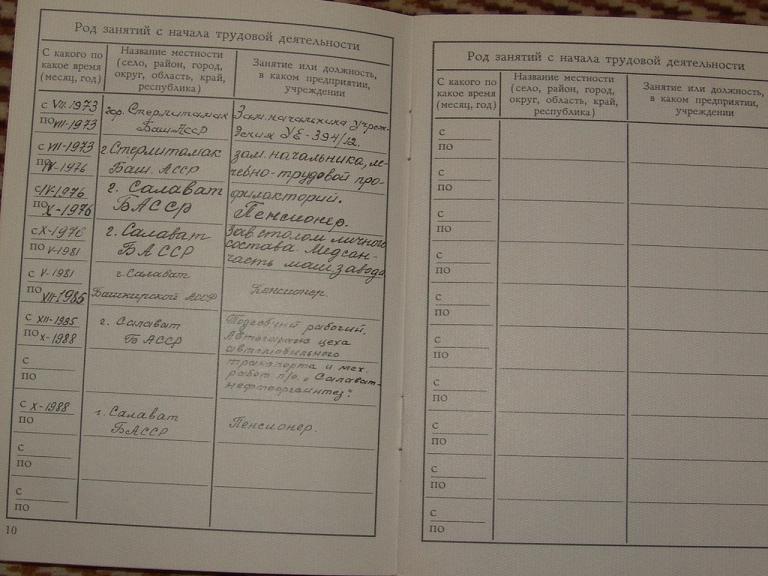 Род занятий с начала трудовой деятельности
С какого по какое время (месяц, год)
Название местности (село, район, город, округ, область, край, республика)
Занятие или должность, в каком предприятии, учреждении
с VII-1973
по VII-1973
гор. Стерлитамак
Баш. АССР
Зам. начальника учреж-
дения УЕ-394/12.
с VII-1973
по IV-1976
г Стерлитамак
Баш. АССР
зам. начальника, ле-
чебно-трудовой про-
филакторий.
с IV-1976
по X-1976
г. Салават
БАССР
Пенсионер.
с X-1976
по V-1981
г. Салават
БАССР
Зав столом личного
состава. Медсан-
часть маш завода
с V-1981
по VII-1985
г. Салават
Башкирской АССР
Пенсионер.
с XII-1985
по X-1988
г. Салават
БАССР
Подсобный рабочий.
цеха
автомобильного
транспорта и мех.
работ п/о. "Салават-
нефтеоргсинтез".
с
по
с X-1988
г. Салават
БАССР
Пенсионер.
с
по
с
по
10
Род занятий с начала трудовой деятельности
С какого по какое время (месяц, год)
Название местности (село, район, город, округ, область, край, республика)
Занятие или должность, в каком предприятии, учреждении
с
по
с
по
с
по
с
по
с
по
с
по
с
по
с
по
с
по
с
по